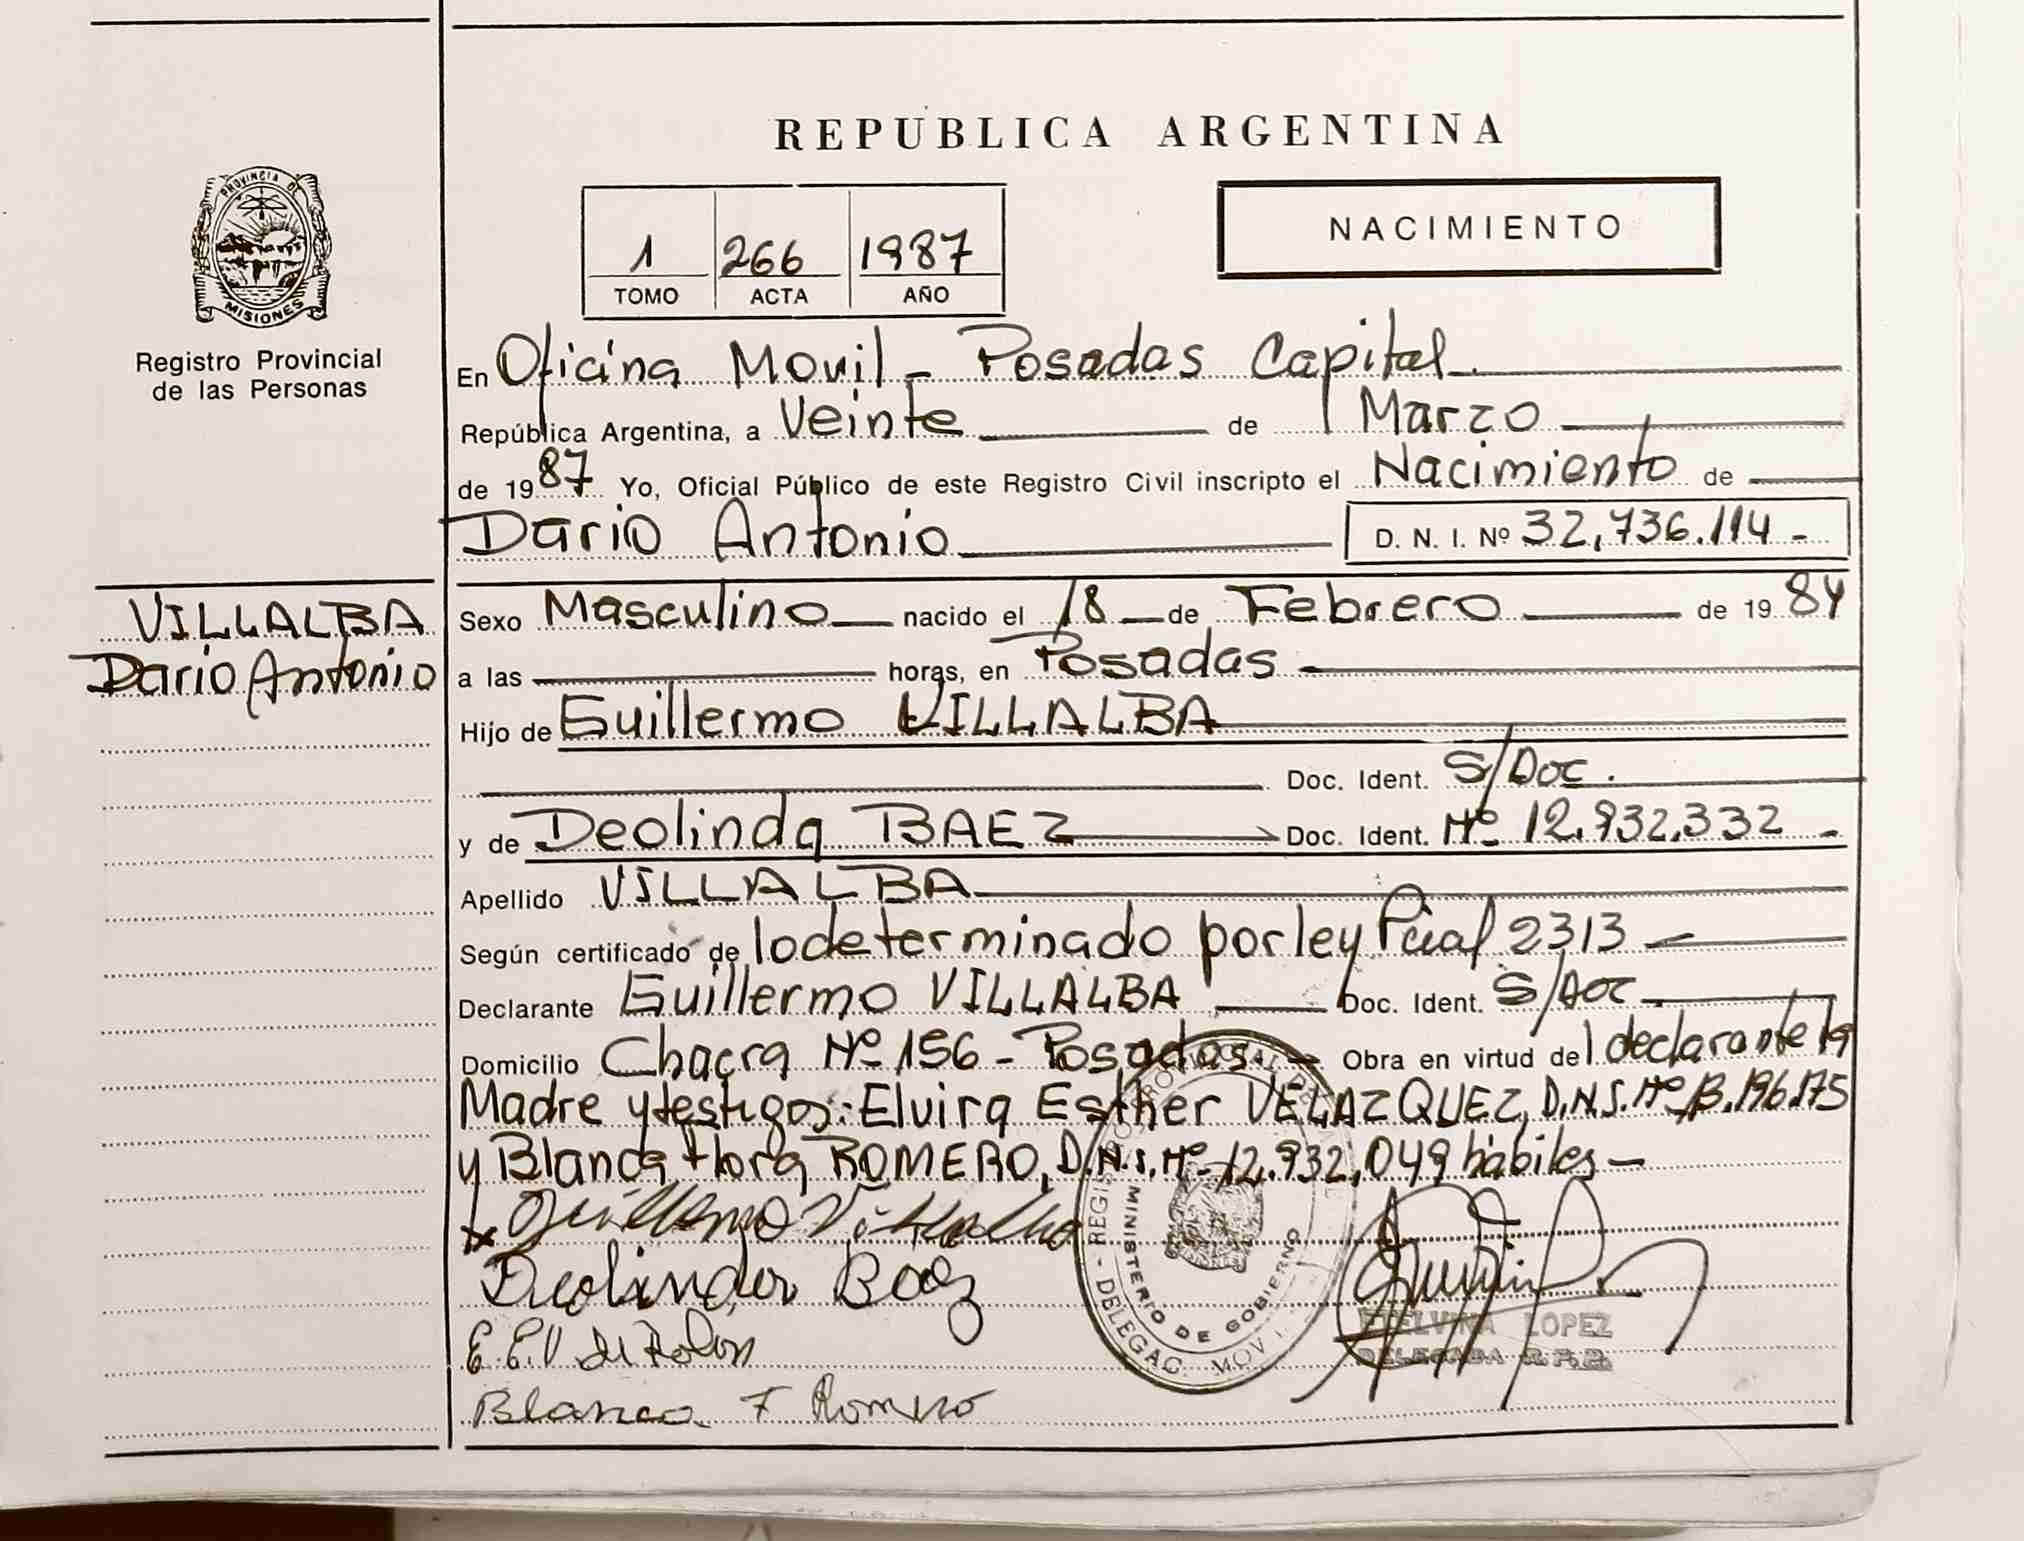 REPUBLICA ARGENTINA
PROVINCIA DE
MISIONES
Registro Provincial
de las Personas
1 266 1987
TOMO ACTA AÑO
NACIMIENTO
En Oficina Movil - Posadas Capital
República Argentina, a Veinte de Marzo
de 1987 Yo, Oficial Público de este Registro Civil inscripto el Nacimiento de
Dario Antonio D. N. I. Nº 32,736.114 -
VILLALBA
Dario Antonio
Sexo Masculino nacido el 18 de Febrero de 1984
a las horas, en Posadas
Hijo de Guillermo VILLALBA
Doc. Ident. S/Doc.
y de Deolinda BAEZ Doc. Ident. Nº 12.932.332 -
Apellido VILLALBA
Según certificado de lo determinado por ley Pcial 2313
Declarante Guillermo VILLALBA Doc. Ident. S/Doc
Domicilio Chacra Nº 156 - Posadas - Obra en virtud del declarante la
Madre y testigos: Elvira Esther VELAZQUEZ, D.N.I. Nº 13.196.175
y Blanca Flora ROMERO, D.N.I. Nº 12.932,049 hábiles -
Guillermo Villalba
Deolinda Baez
E. E. V de Rolon
Blanca F Romero
MINISTERIO DE GOBIERNO
DELEGAC. MOVI
ETELVINA LOPEZ
DELEGADA R.P.P.